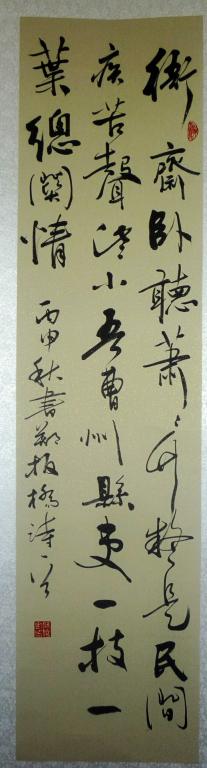 衙齋臥聽蕭〻竹疑是民間
疾苦聲些小吾曹州縣吏一枝一
葉總關情
丙申秋書鄭板橋詩一首